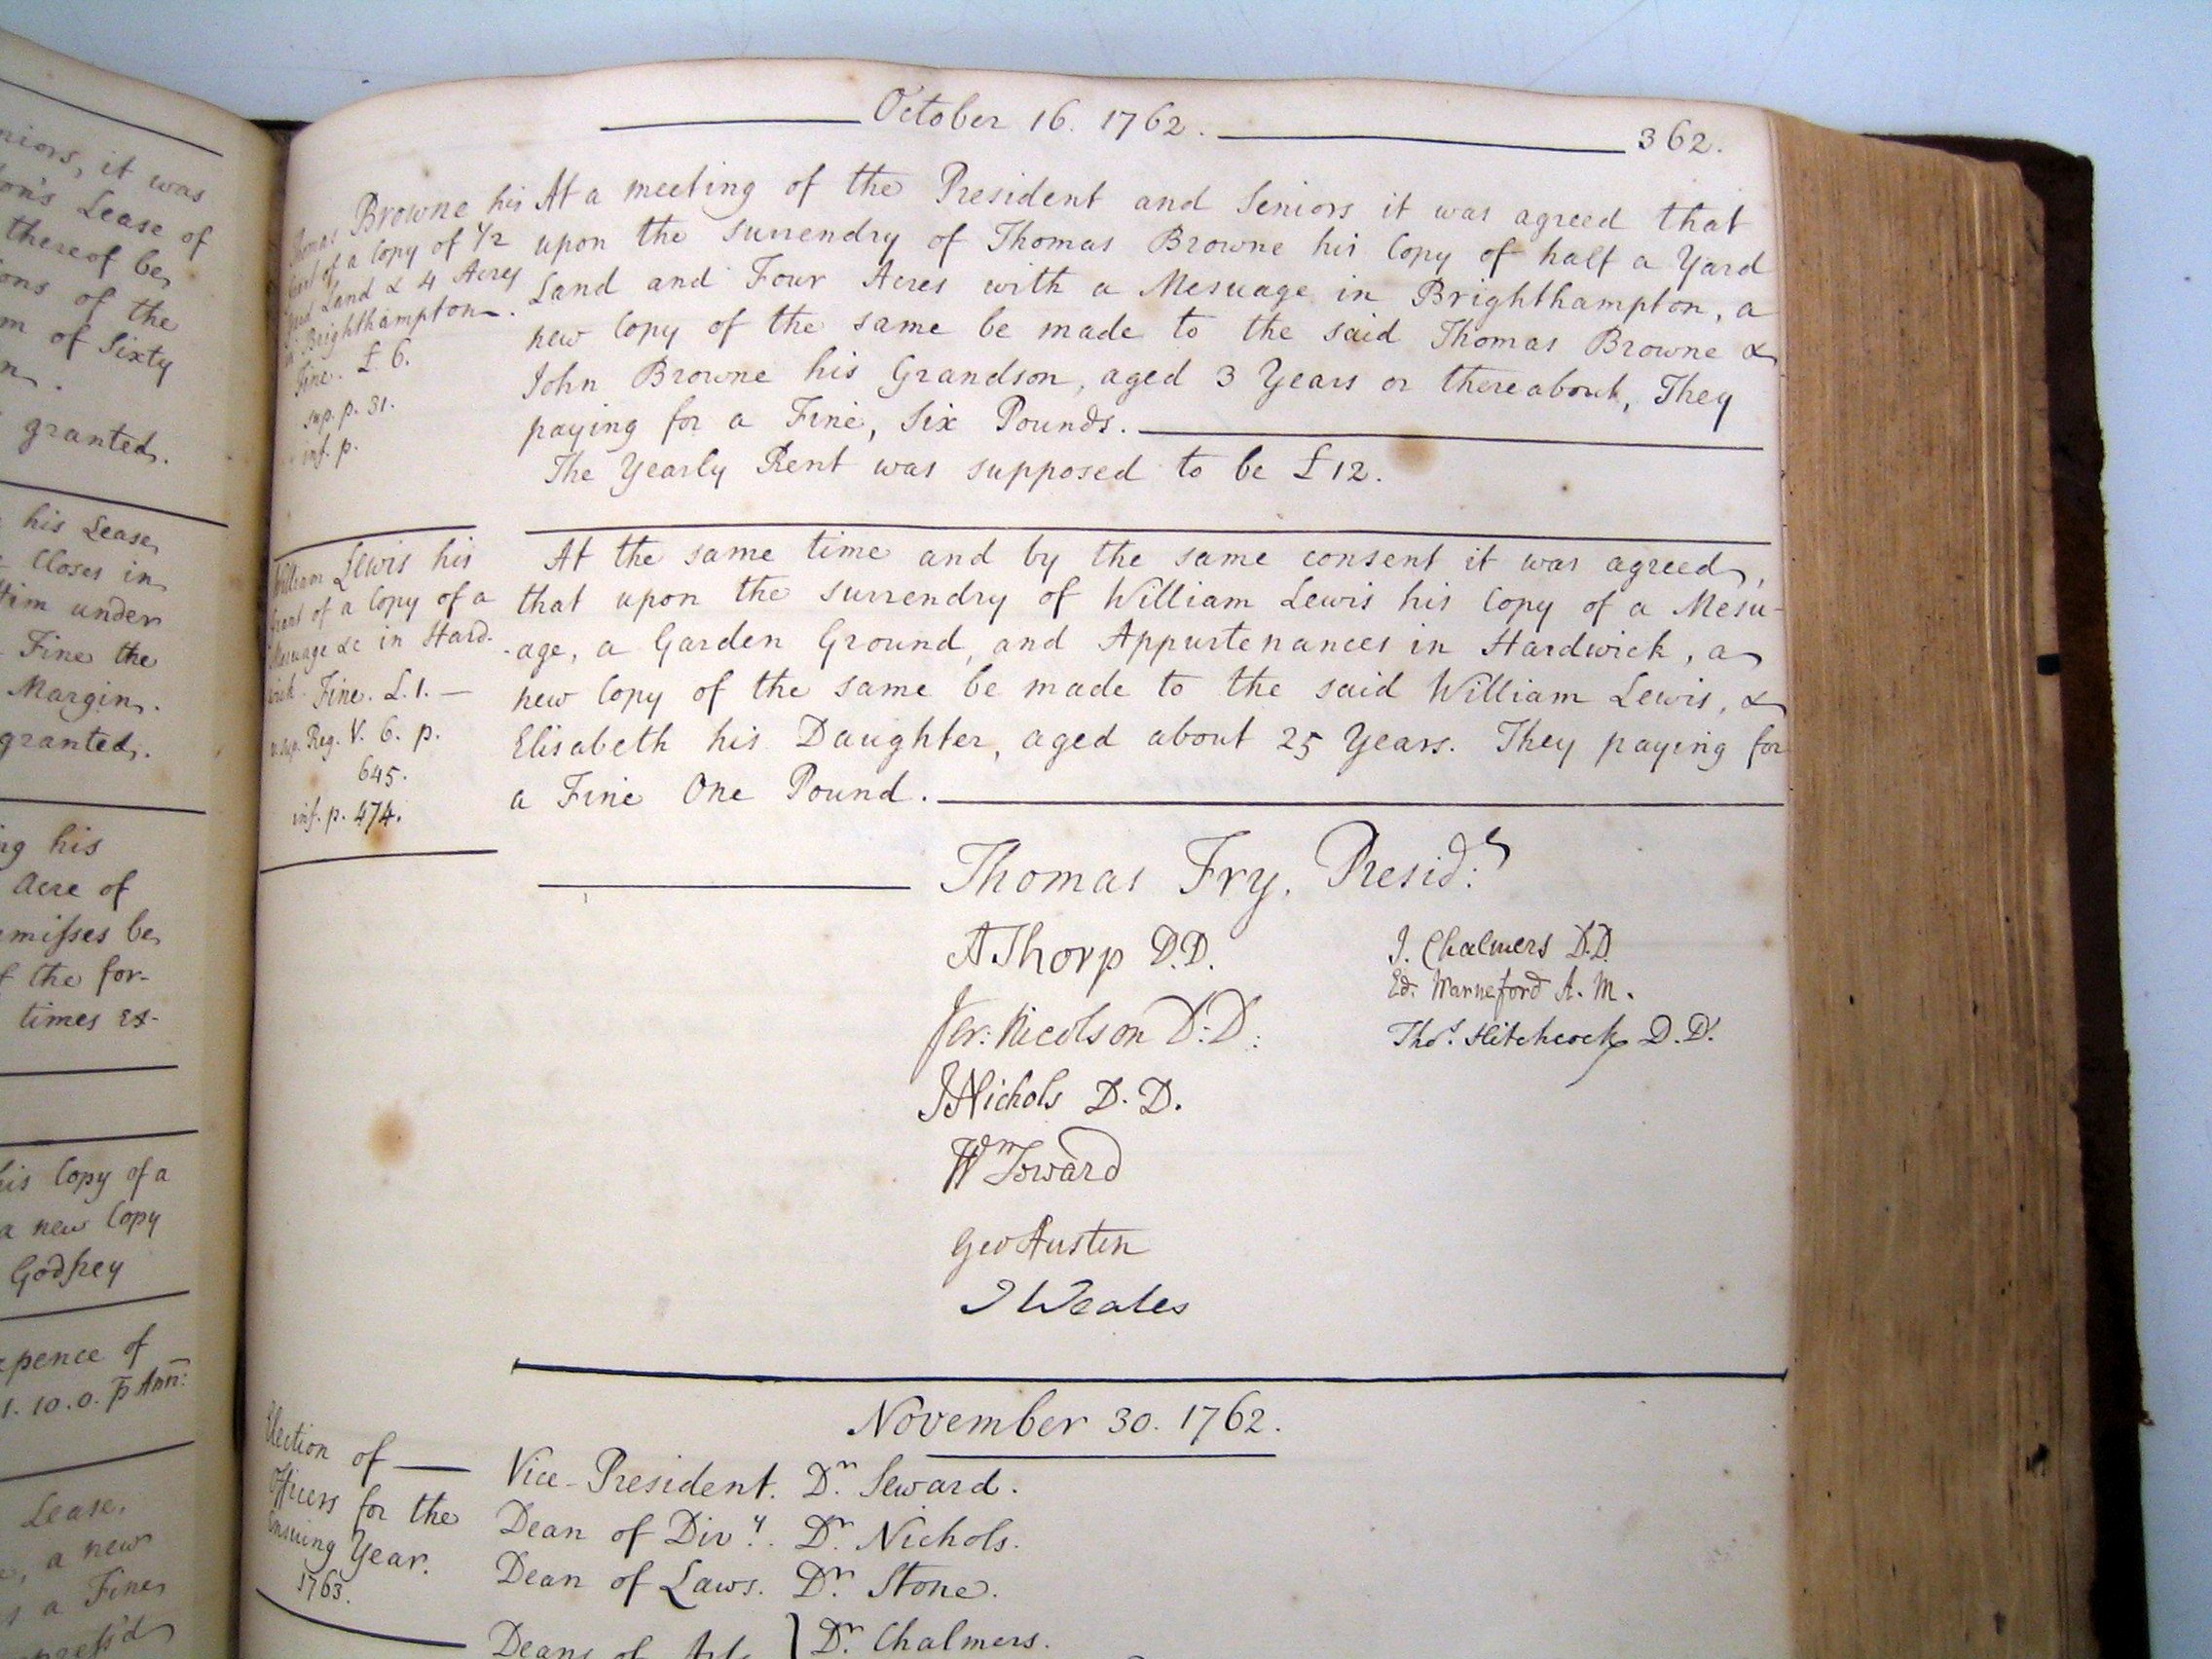 niors, it was
Lease of
thereof be
ons of the
m of Sixty
granted.
his Lease
Closes in
under
Fine the
Margin.
granted.
his
Acre of
emisses be
f the for-
times ex-
his Copy of a
a new Copy
Godfrey
pence of
1. 10. 0. p Ann:
Lease,
a new
a Fine
October 16. 1762.
362.
Thomas Browne his
Grant of a Copy of 1/2
Yard Land & 4 Acres
in Brighthampton.
Fine. £ 6.
sup. p. 31.
inf. p.
At a meeting of the President and Seniors it was agreed that
upon the Surrendry of Thomas Browne his Copy of half a Yard
Land and Four Acres with a Mesuage in Brighthampton, a
new Copy of the same be made to the said Thomas Browne &
John Browne his Grandson, aged 3 Years or thereabout, They
paying for a Fine, Six Pounds.
The Yearly Rent was supposed to be £12.
William Lewis his
Grant of a Copy of a
Mesuage &c in Hard-
wick. Fine. £.1.
v. sup. Reg. V. 6. p.
645.
inf. p. 474.
At the same time and by the same consent it was agreed,
that upon the Surrendry of William Lewis his Copy of a Mesu-
-age, a Garden Ground, and Appurtenances in Hardwick, a
new Copy of the same be made to the said William Lewis, &
Elisabeth his Daughter, aged about 25 Years. They paying for
a Fine One Pound.
Thomas Fry, Presidt
A Thorp D.D.
Jer: Nicolson D:D:
J Nichols D.D.
Wm
Geo Austen
J Weales
J. Chalmers D.D.
Ed. Warneford A.M.
Thos. Hitchcock D.D.
November 30. 1762.
Election of
Officers for the
Ensuing Year.
1763.
Vice-President. Dr. Seward.
Dean of Divy. Dr. Nichols.
Dean of Laws. Dr. Stone.
Deans of Arts } Dr. Chalmers.